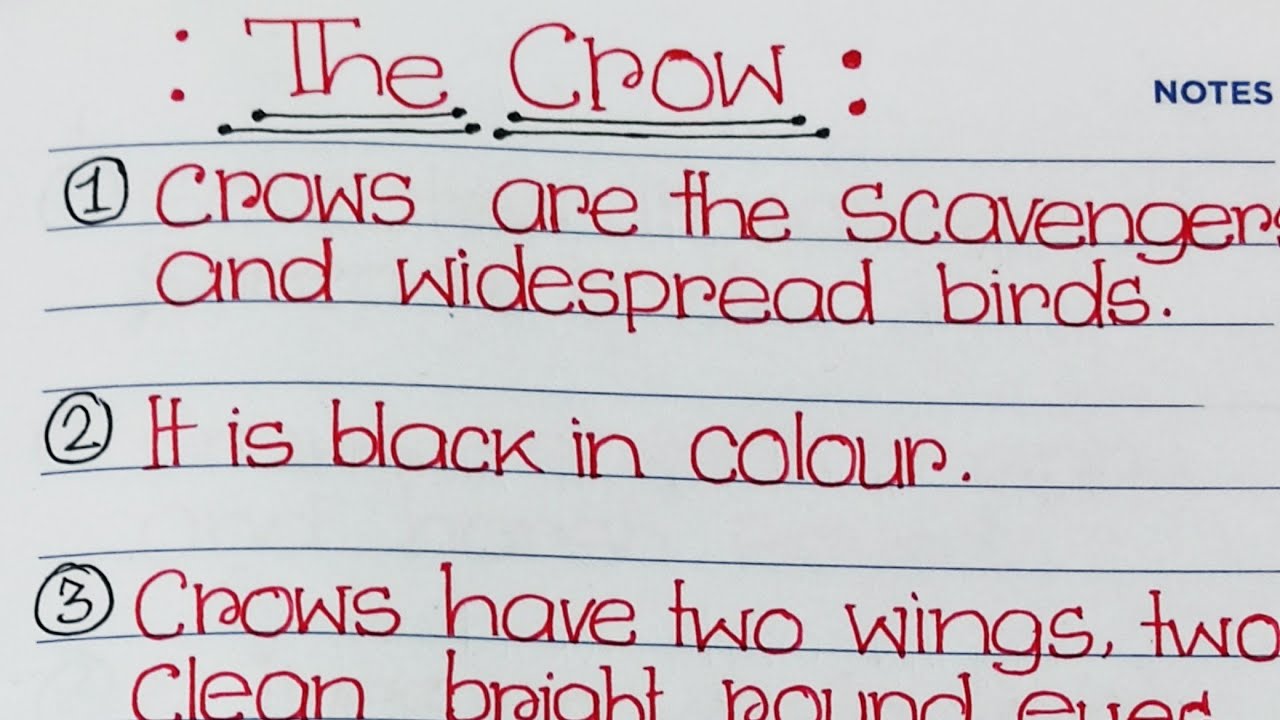 : The Crow :
NOTES
1 Crows are the Scavengers
and widespread birds.
2 It is black in colour.
3 Crows have two wings, two
clean bright round eyes